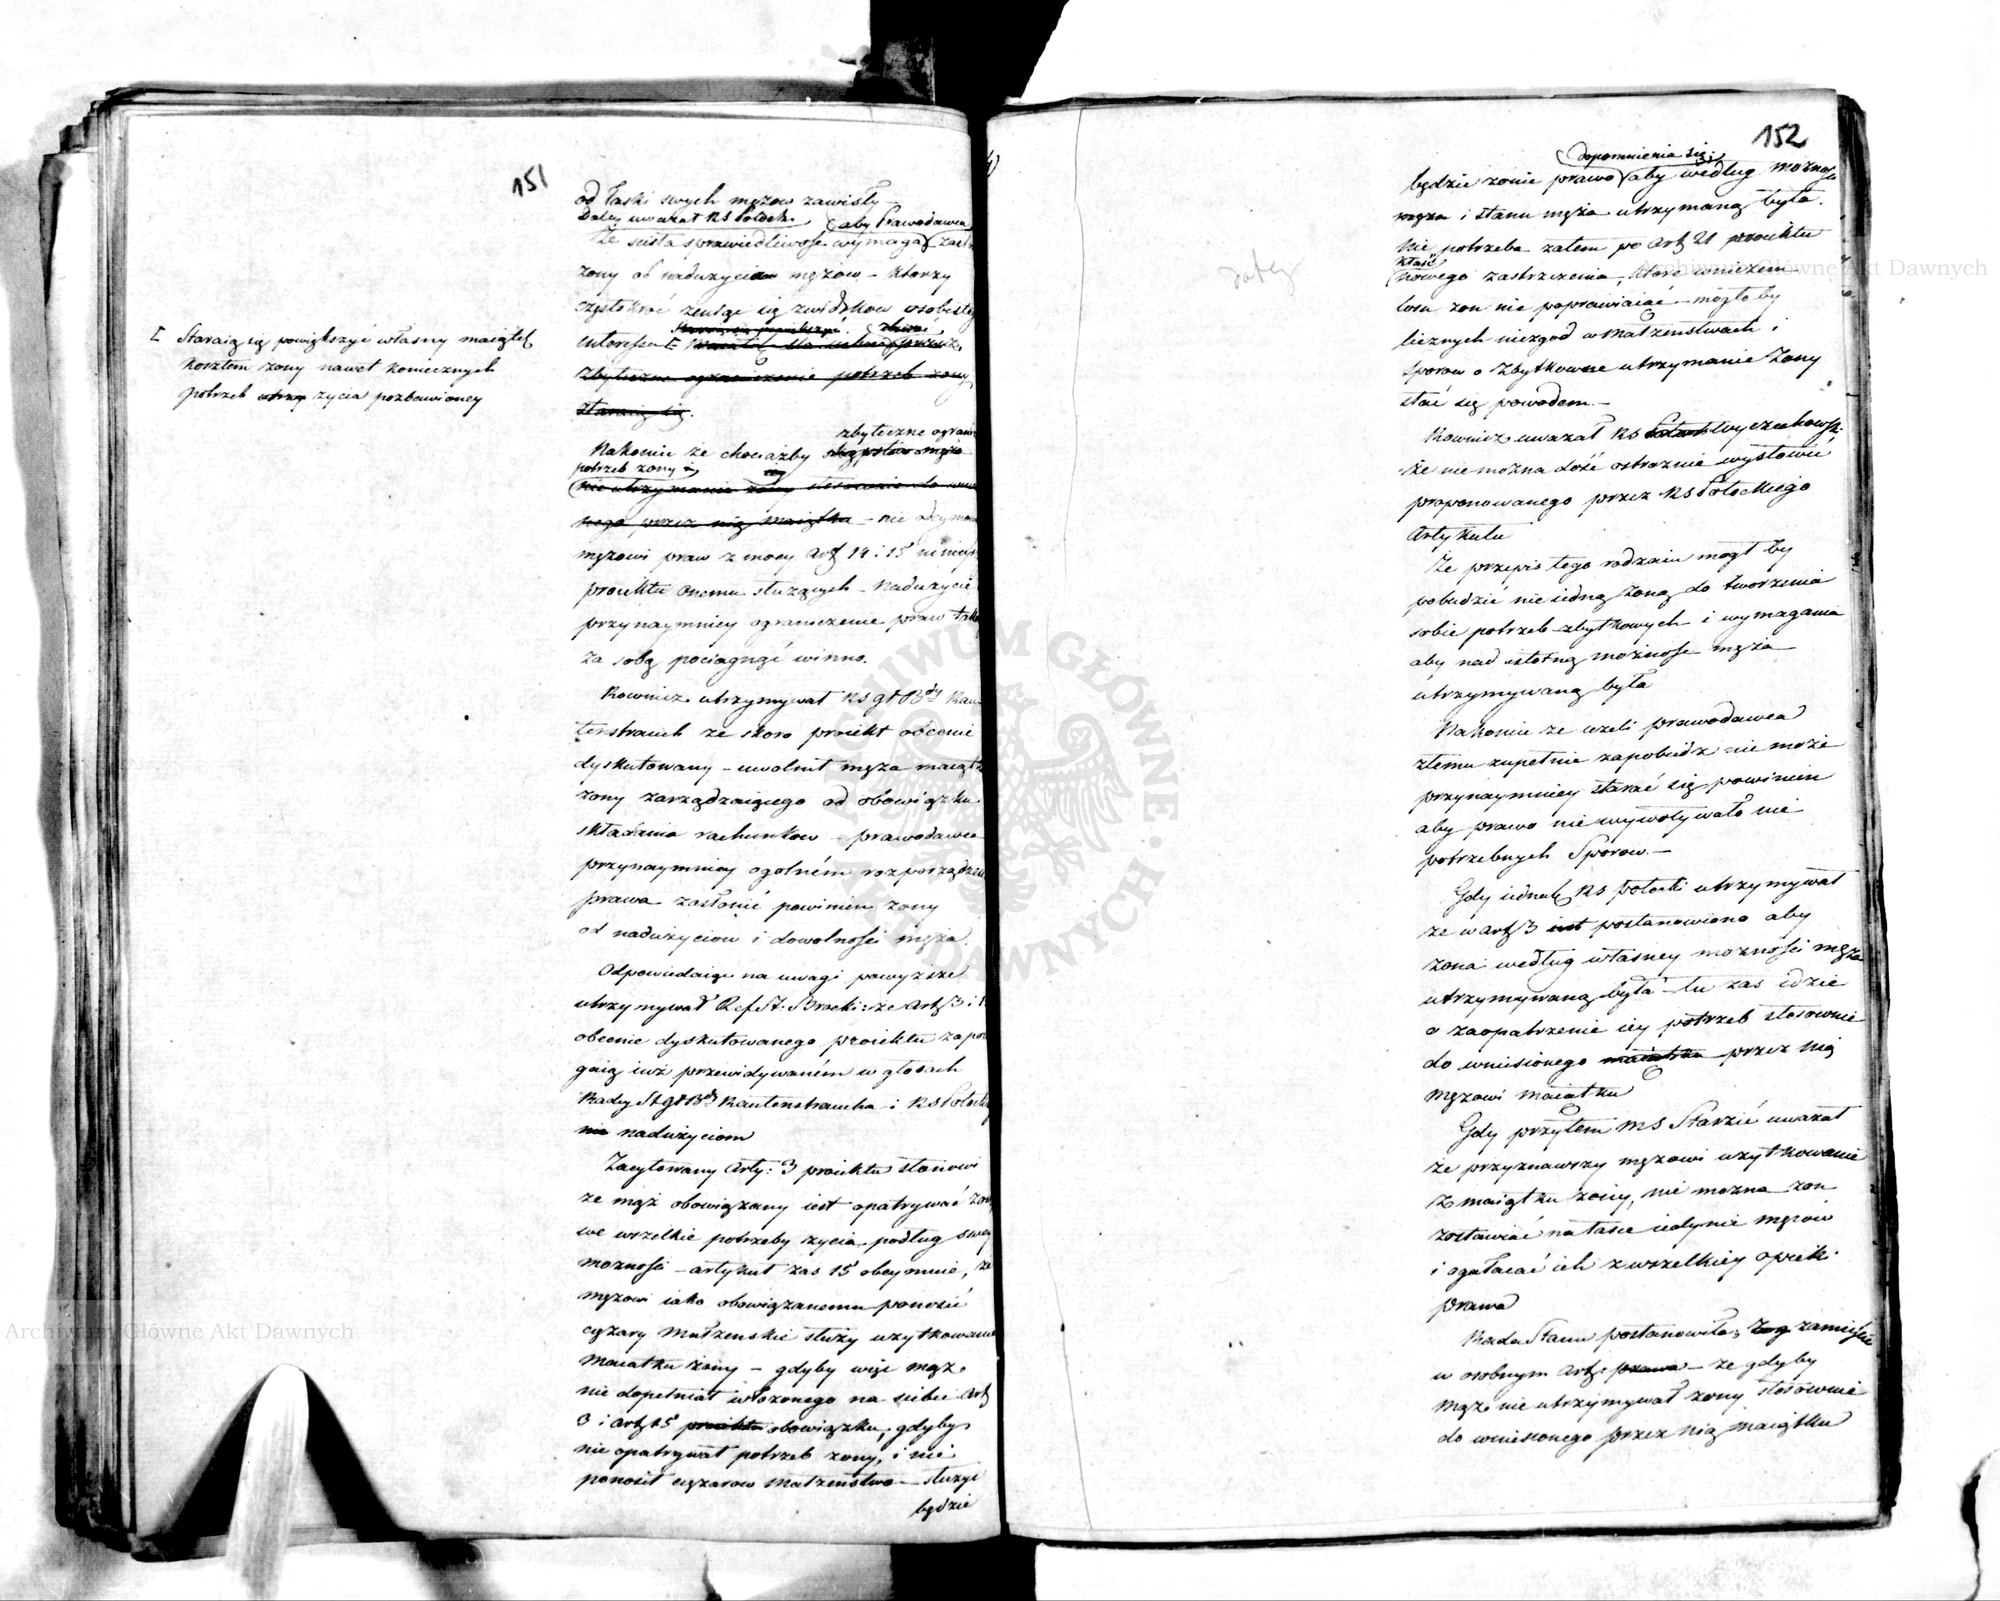 151
od łaski swych mężow zawisły –
Daley uważał RS Potocki.
że ścisła sprawiedliwość wymaga aby Prawodawca
żony od nadużyciow mężow – ktorzy
częstokroć żeniąc się z widokow osobistego
interessu [
[ Staraią się powiększyć własny maiątek
kosztem żony nawet koniecznych
potrzeb życia pozbawioney
zbyteczne ograniczenie potrzeb żony
staraią się.
Nakoniec że chociażby zbyteczne ogranicz
potrzeb żony
nie utrzymanie żony stosownie do wnie
nego przez nią maiątku – nie odeymow
mężowi praw z mocy Art 14 i 15 ninieysz
proiektu onemu służących – Nadużycie
przynaymniey ograniczenie praw tak
za sobą pociągnąć winno.
Rownież utrzymywał RS gł Bdy Rau
tenstrauch że skoro proiekt obecnie
dyskutowany – uwolnił męża maiątk
żony zarządzaiącego od obowiązku
składania rachunkow – prawodawca
przynaymniey ogolném rozporządzen
prawa zasłonić powinien żony
od nadużyciow i dowolności męża.
Odpowiadaiąc na uwagi powyższe
utrzymywał Ref St: Brocki: że Art 3 i 1
obecnie dyskutowanego proiektu zapo
gaią iuż przewidywaném w głosach
Radcy St gł Bdy Rautenstraucha i RS Potock
nadużyciom
Zacytowany Arty: 3 proiektu stanowi
że mąż obowiązany iest opatrywać żon
we wszelkie potrzeby życia podług swey
możności – artykuł zaś 15 obeymuie, że
mężowi iako obowiązanemu ponosić
ciężary Małżeńskie służy użytkowanie
Maiątku żony – gdyby więc mąż
nie dopełniał włożonego na siebie Art
3 i Art 15 proiektu obowiązku, gdyby
nie opatrywał potrzeb żony, i nie
ponosił ciężarow małżeństwa – służyć
będzie
152
dopomnienia się,
będzie żonie prawo aby według możnoś
męża i stanu męża utrzymaną była.
Nie potrzeba zatem po Art 21 proiektu
kłaść
nowego zastrzeżenia, ktore w niczem
losu żon nie poprawiaiąc – mogło by
licznych niezgod w Małżeństwach i
sporow o Zbytkowne utrzymanie Żony
stać się powodem. –
Rownież uważał RS Wyczechowski
że nie można dość ostrożnie wysłowić
proponowanego przez RS Potockiego
Artykułu
Że przepis tego rodzaiu mogł by
pobudzić nie iedną żonę do tworzenia
sobie potrzeb zbytkowych i wymagania
aby nad istotną możność męża
utrzymywaną była
Nakoniec że ieżeli prawodawca
złemu zupełnie zapobiedz nie może
przynaymniey starać się powinien
aby prawo nie wywoływało nie
potrzebnych Sporow. –
Gdy iednak RS Potocki utrzymywał
że w Art 3 iest postanowiono aby
żona według własney możności męża
utrzymywaną była – tu zaś idzie
o zaopatrzenie iey potrzeb stosownie
do wniesionego maiątku przez nią
mężowi maiątku
Gdy przytem MS Starzić uważał
że przyznawszy mężowi użytkowanie
z maiątku żony, nie można żon
zostawiać na łasce iedynie mężow
i ogałacać ich z wszelkiey opieki
prawa
Rada Stanu postanowiła, zamieścić
w osobnym Art: prawa – że gdyby
Mąż nie utrzymywał żony stosownie
do wniesionego przez nią maiątku
Archiwum Główne Akt Dawnych
Archiwum Główne Akt Dawnych
ARCHIWUM GŁÓWNE AKT DAWNYCH